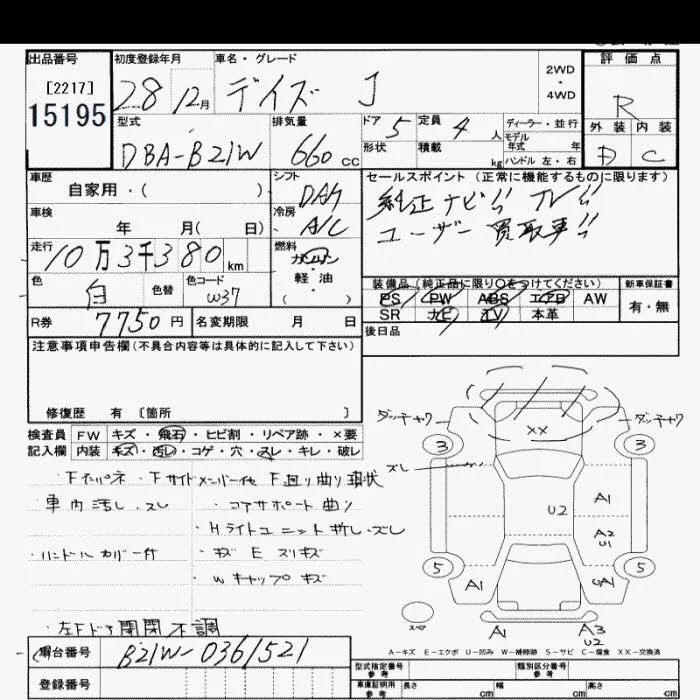 出品番号 初度登録年月 車名・グレード 2WD・4WD 評価点
[2217]
15195
28 12月 デイズ J R
型式 排気量 ドア 5 定員 4人 ディーラー・並行 外装 内装
DBA-B21W 660cc 形状 積載 kg モデル年式 年 D C
ハンドル 左・右
車歴 シフト セールスポイント (正常に機能するものに限ります)
自家用・( ) DAT 純正ナビ!! TV!!
車検 冷房 ユーザー買取車!!
年 月( 日) A/C
走行 燃料
10万3千380km ガソリン・軽油・( )
色 色替 色コード 装備品(純正品に限り○をつけてください) 新車保証書
白 W37 PS PW ABS エアB AW 有・無
SR ナビ TV 本革
R券 7750円 名変期限 月 日 後日品
注意事項申告欄(不具合内容等は具体的に記入して下さい)
修復歴 有 [箇所 ]
検査員 FW キズ・飛石・ヒビ割・リペア跡・×要
記入欄 内装 キズ・汚レ・コゲ・穴・スレ・キレ・破レ
下カバネ・Fサイドメンバー他 F廻り曲り現状
車内汚レ・スレ ・コアサポート曲り
・Hライトユニット折レ・ズレ
・ハンドルカバー付 ・キズ E スリキズ
・Wキャップキズ
・左Fドア開閉不調
ダッチャク XX ダッチャク
3 3
ズレ
A1
U2
A2
U1
5 5
A1 A1
スペア
A1 A3
U2
A-キズ E-エクボ U-凹み W-補修跡 S-サビ C-腐食 XX-交換済
車台番号 B21W-0361521
型式指定番号 参考 類別区分番号 参考
登録番号 車庫証明用 参考 長さ cm 幅 cm 高さ cm